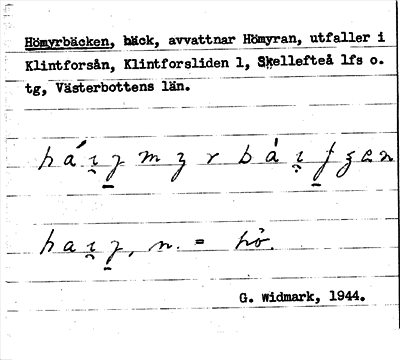 Hömyrbäcken, bäck, avvattnar Hömyran, utfaller i
Klintforsån, Klintforsliden 1, Skellefteå lfs o.
tg, Västerbottens län.
n. = hö.
G. Widmark, 1944.